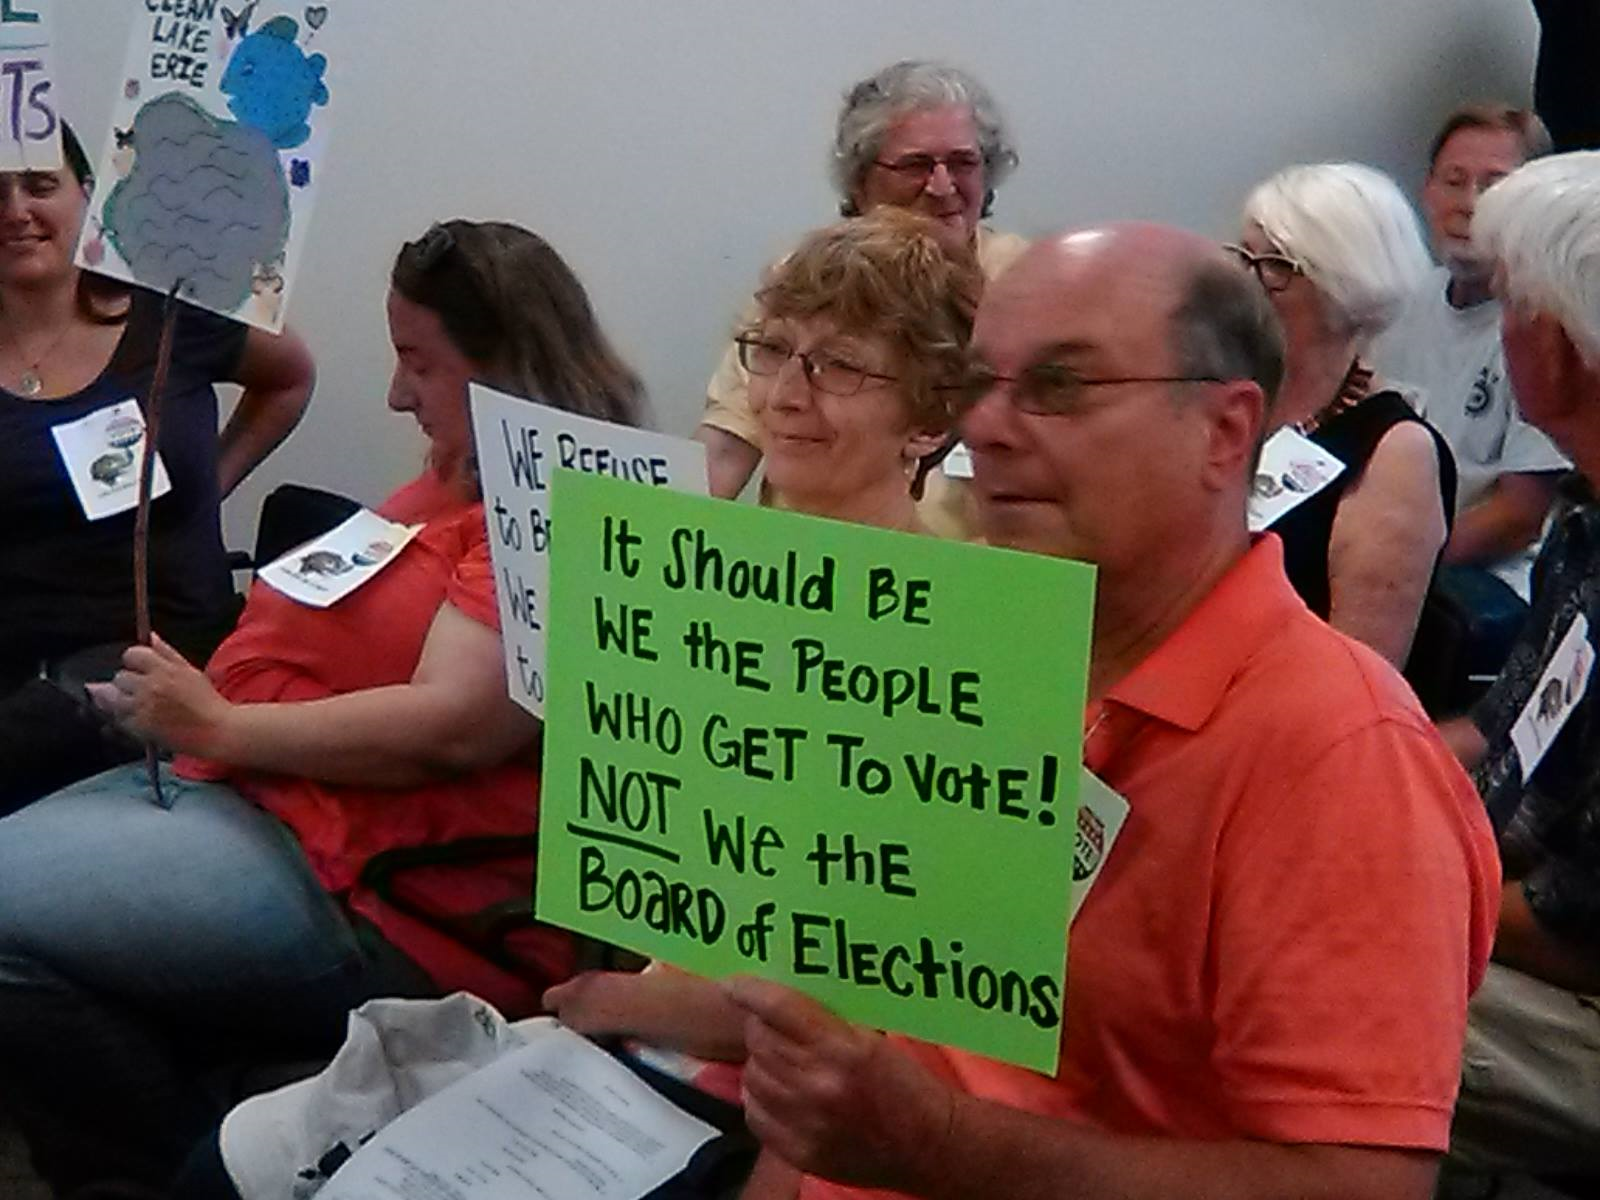 CLEAN
LAKE
ERIE
Ts
WE REFUSE
to BE
WE
to
It Should BE
WE thE PEOPLE
WHO GET To VOtE!
NOT We thE
BoaRD of Elections